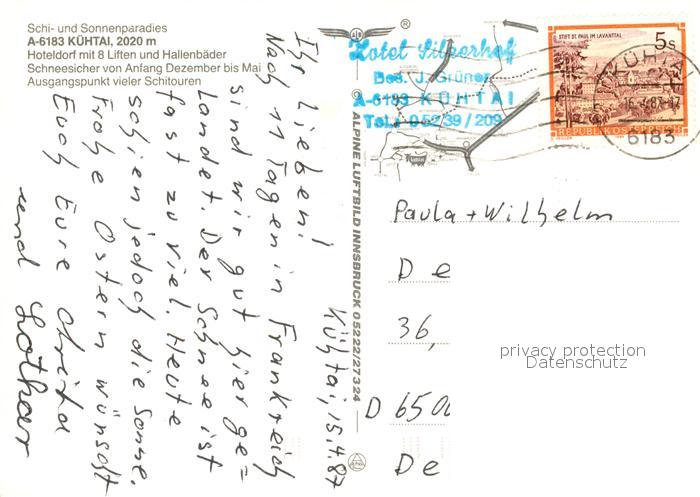 Schi- und Sonnenparadies
A-6183 KÜHTAI, 2020 m
Hoteldorf mit 8 Liften und Hallenbäder
Schneesicher von Anfang Dezember bis Mai
Ausgangspunkt vieler Schitouren
Kühtai, 15.4.87
Ihr Lieben!
Nach 11 Tagen in Frankreich
sind wir gut hier ge=
landet. Der Schnee ist
fast zu viel. Heute
schien jedoch die Sonne.
Frohe Ostern wünscht
Euch Eure
und Lothar
ALPINE LUFTBILD INNSBRUCK 05222/27324
®
Hotel Silzerhof
Bes. J. Grüner
A-6183 KÜHTAI
Tel. 05239/209
STIFT ST. PAUL IM LAVANTTAL
5s
REPUBLIK ÖSTERREICH
KÜHTAI
6183
Paula + Wilhelm
De
36,
D 6500
De
privacy protection
Datenschutz